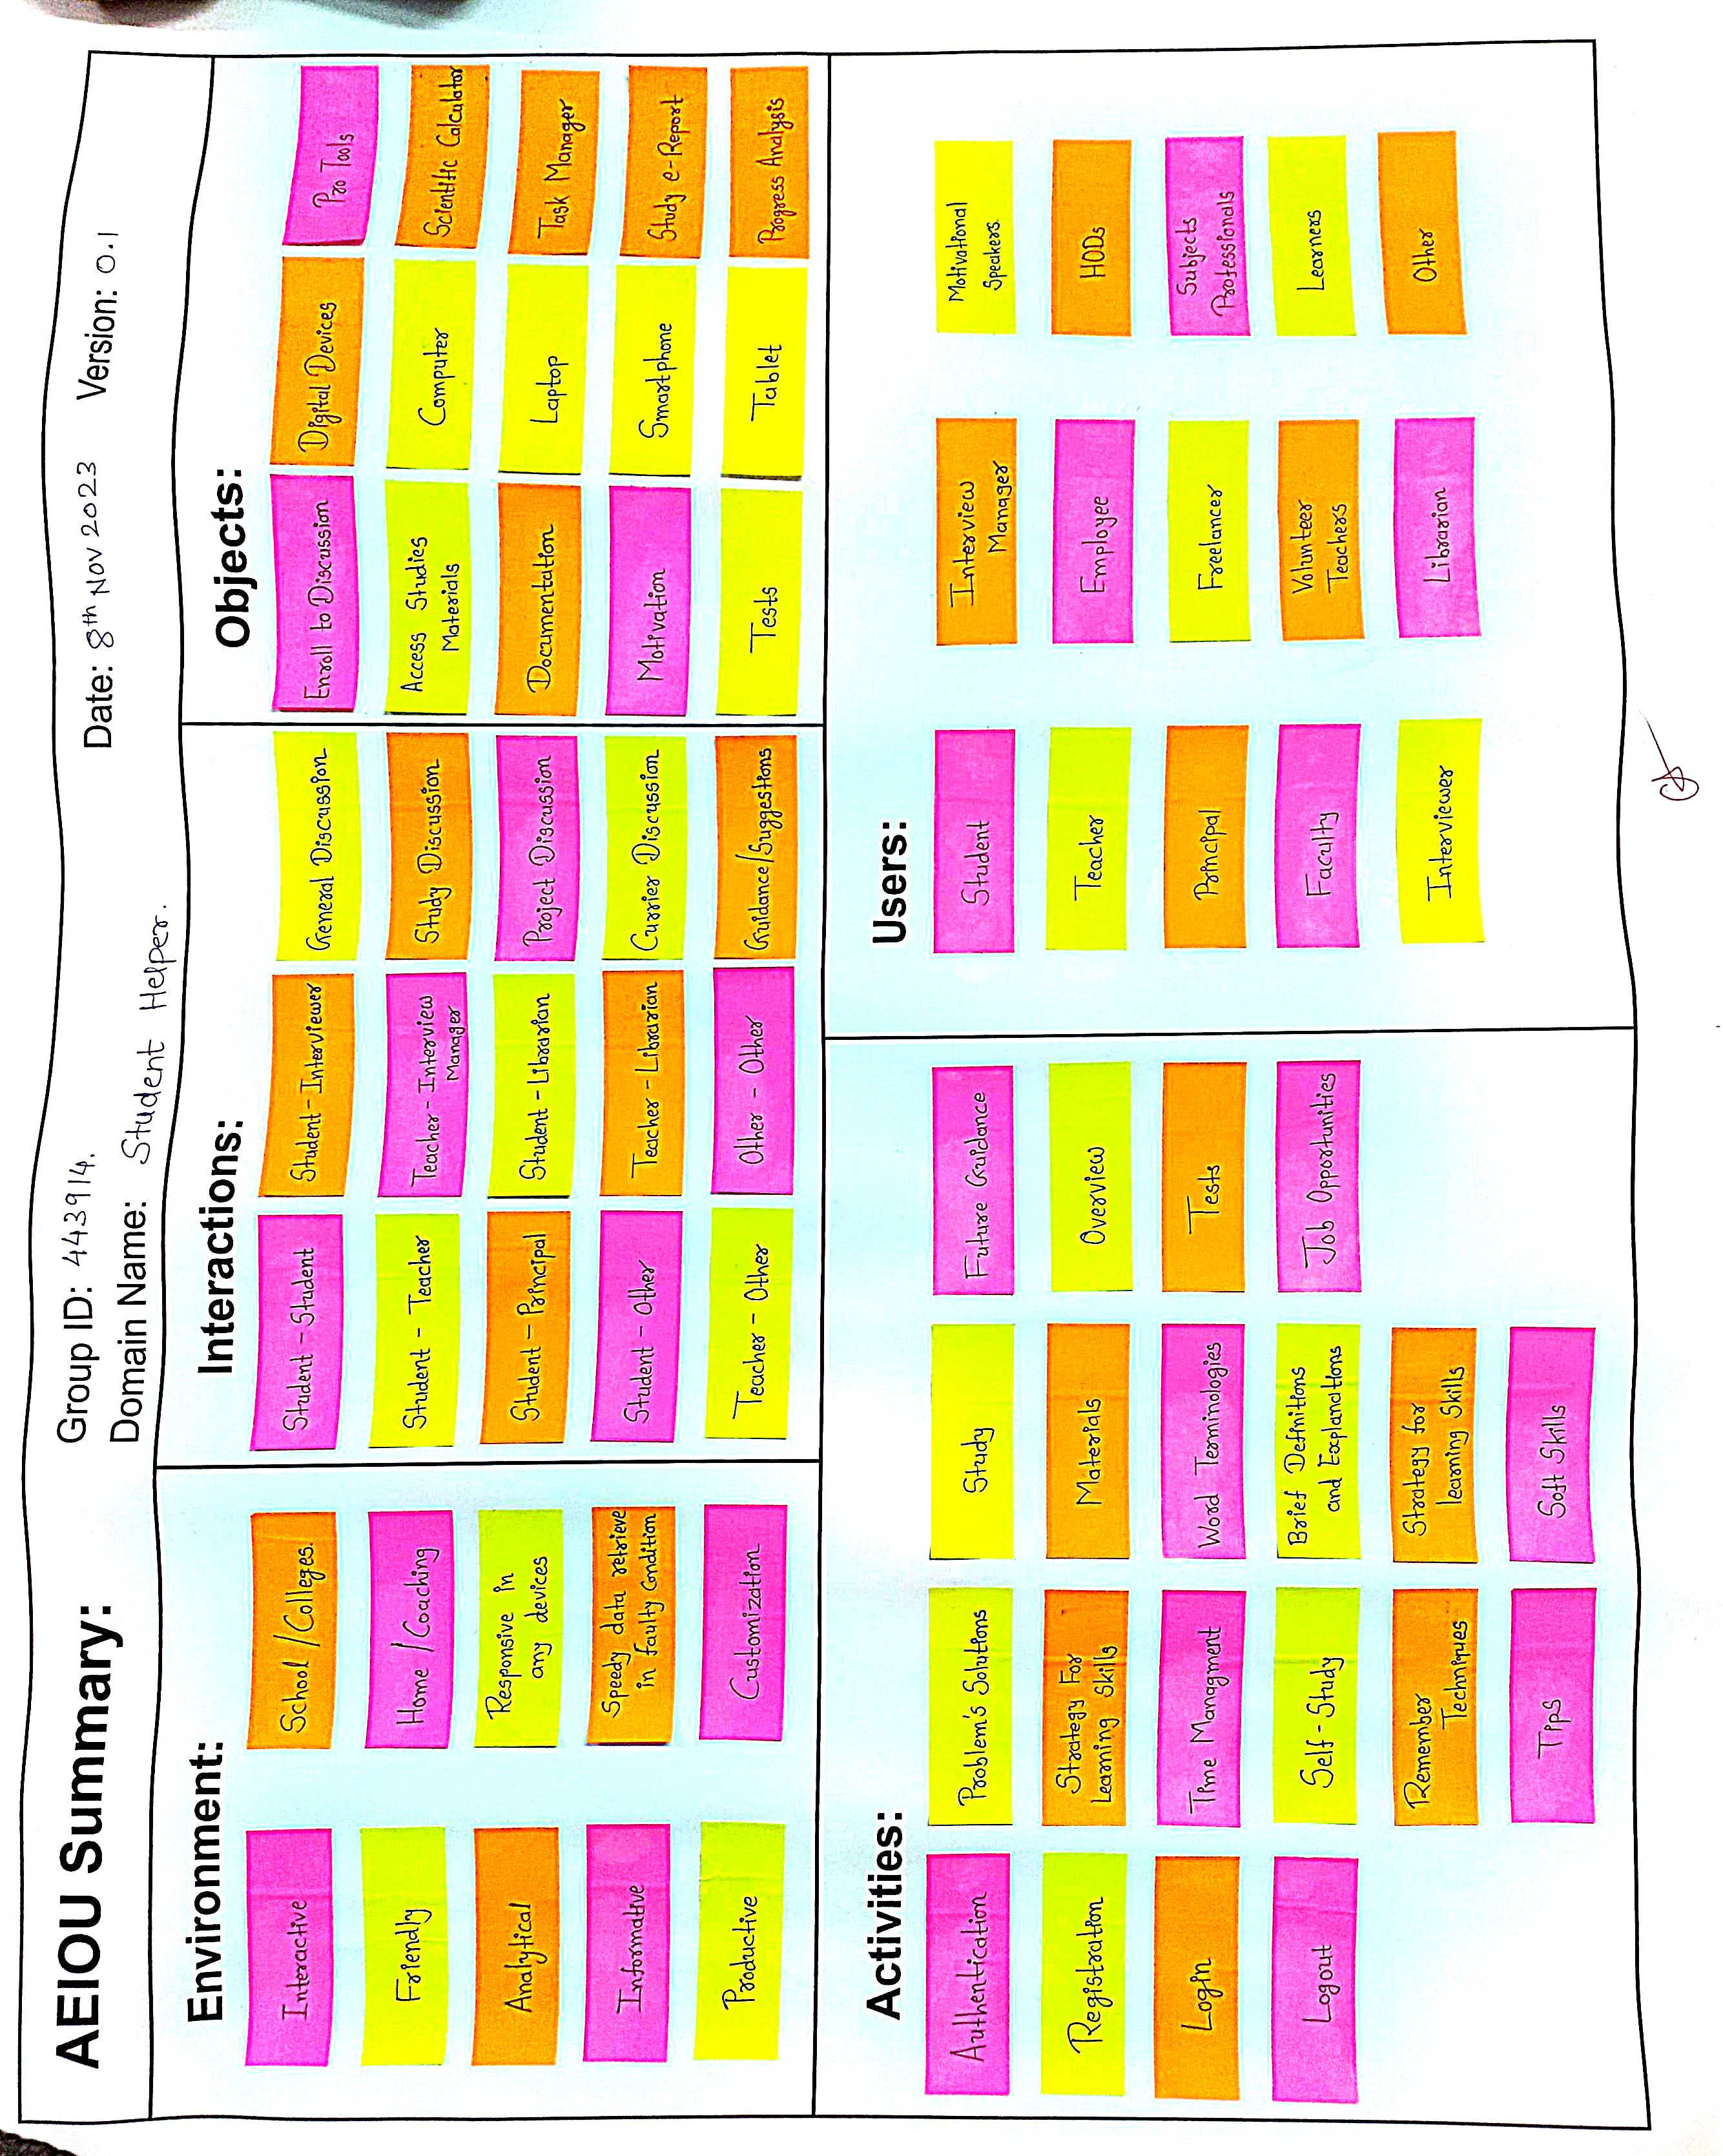 AEIOU Summary:
Group ID: 443914.
Date: 8th Nov 2023
Version: 0.1
Domain Name: Student Helper.
Environment:
Interactive
Friendly
Analytical
Informative
Productive
School / Colleges.
Home / Coaching
Responsive in
any devices
Speedy data retrieve
in faulty Condition
Customization
Interactions:
Student - Student
Student - Teacher
Student - Principal
Student - Other
Teacher - Other
Student - Interviewer
Teacher - Interview
Manager
Student - Librarian
Teacher - Librarian
Other - Other
General Discussion
Study Discussion
Project Discussion
Currier Discussion
Guidance/Suggestions
Objects:
Enroll to Discussion
Access Studies
Materials
Documentation
Motivation
Tests
Digital Devices
Computer
Laptop
Smartphone
Tablet
Pro Tools
Scientific Calculator
Task Manager
Study e-Report
Progress Analysis
Activities:
Authentication
Registration
Login
Logout
Problem's Solutions
Strategy For
Learning Skills
Time Managment
Self - Study
Remember
Techniques
Tips
Study
Materials
Word Terminologies
Brief Definitions
and Explanations
Strategy for
learning Skills
Soft Skills
Future Guidance
Overview
Tests
Job Opportunities
Users:
Student
Teacher
Principal
Faculty
Interviewer
Interview
Manager
Employee
Freelancer
Volunteer
Teachers
Librarian
Motivational
Speakers
HODs
Subjects
Professionals
Learners
Other